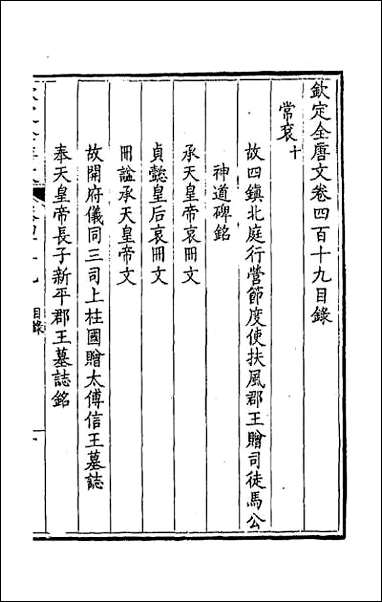 欽定全唐文卷四百十九目錄
常袞十
故四鎮北庭行營節度使扶風郡王贈司徒馬公
神道碑銘
承天皇帝哀冊文
貞懿皇后哀冊文
冊諡承天皇帝文
故開府儀同三司上柱國贈太傅信王墓誌
奉天皇帝長子新平郡王墓誌銘
目錄